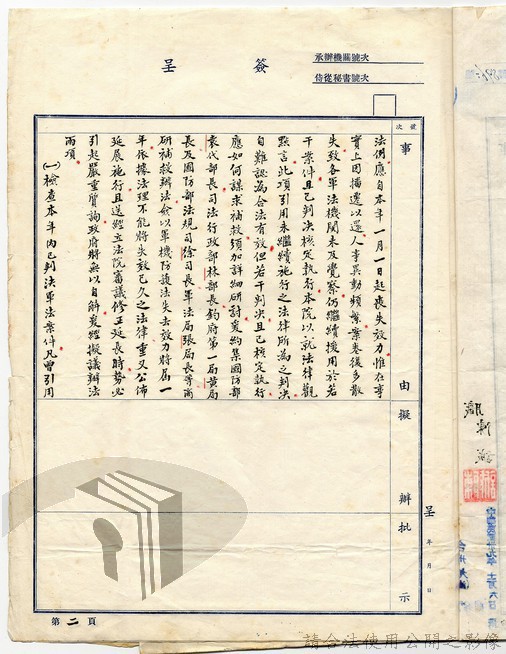 簽呈
承辦機關號次
侍從秘書號次
號次
事
由
擬
辦
批
示
呈
年
月
日
法例應自本年一月一日起喪失效力惟在事
實上因播遷以還人事異動頻繁案卷復多散
失致各軍法機關未及覺察仍繼續援用於若
干案件且已判決核定執行本院以就法律觀
點言此項引用未繼續施行之法律所為之判決
自難認為合法有效但若干判決且已核定執行
應如何謀求補救須加詳細研討爰約集國防部
袁代部長司法行政部林部長鈞府第一局黃局
長及國防部法規司徐司長軍法局張局長等商
研補救辦法僉以軍機防護法失去效力將屆一
年依據法理不能將失效已久之法律重又公佈
延展施行且送經立法院審議修正延長時勢必
引起嚴重質詢政府將無以自解爰經擬議辦法
兩項
(一)檢查本年內已判決軍法案件凡曾引用
第二頁
請合法使用公開之影像